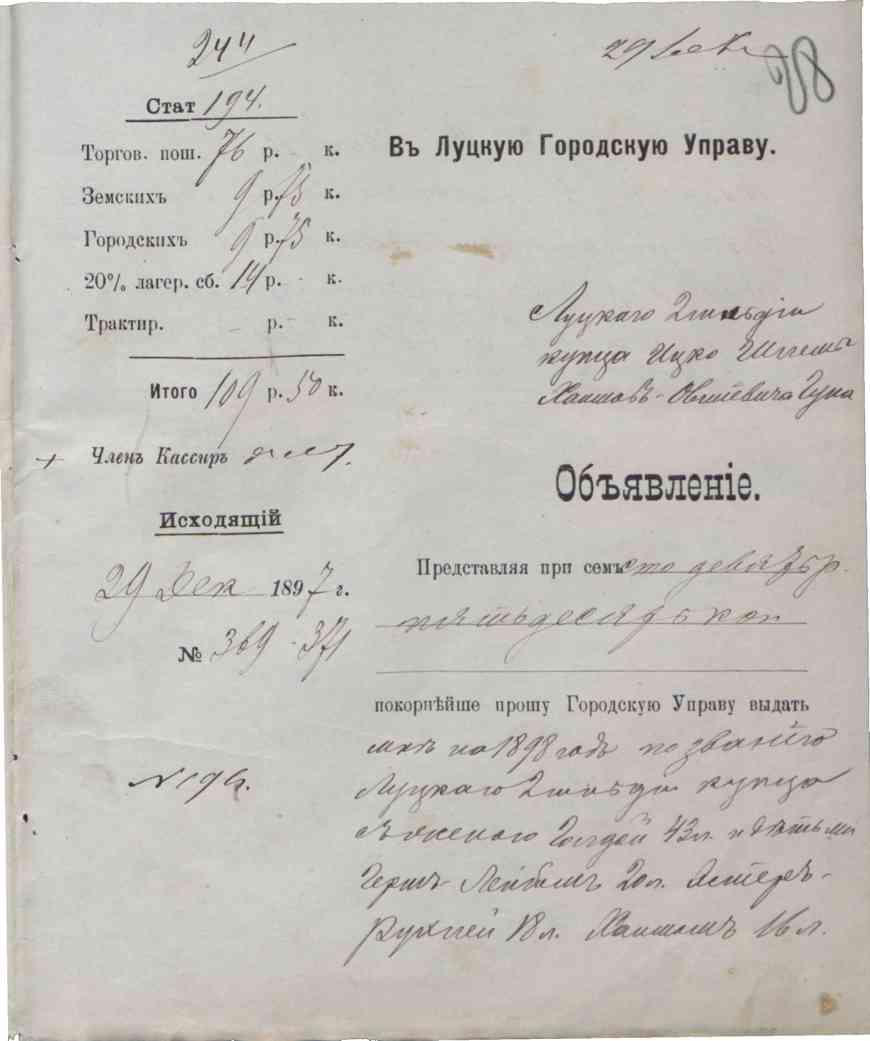 244
Стат 194.
Торгов. пош. 76 р. - к.
Земскихъ 9 р. 75 к.
Городскихъ 9 р. 75 к.
20% лагер. сб. 14 р. - к.
Трактир. - р. - к.
Итого 109 р. 50 к.
+ Членъ Кассиръ
Исходящій
29 Дек 1897 г.
№ 369-371
N 194.
29 Дек
Въ Луцкую Городскую Управу.
Луцкаго 2 гильдіи
купца Ицко
Объявленіе.
Представляя при семъ сто девять р.
пятьдесятъ коп
покорнѣйше прошу Городскую Управу выдать
мнѣ на 1898 годъ по званію
Луцкаго 2 гильдіи купца
съ женою Голдой 43 л. и дѣтьми
Герш-Лейбомъ 20 л. Эстеръ-
Рухлей 18 л. Хаимомъ 16 л.